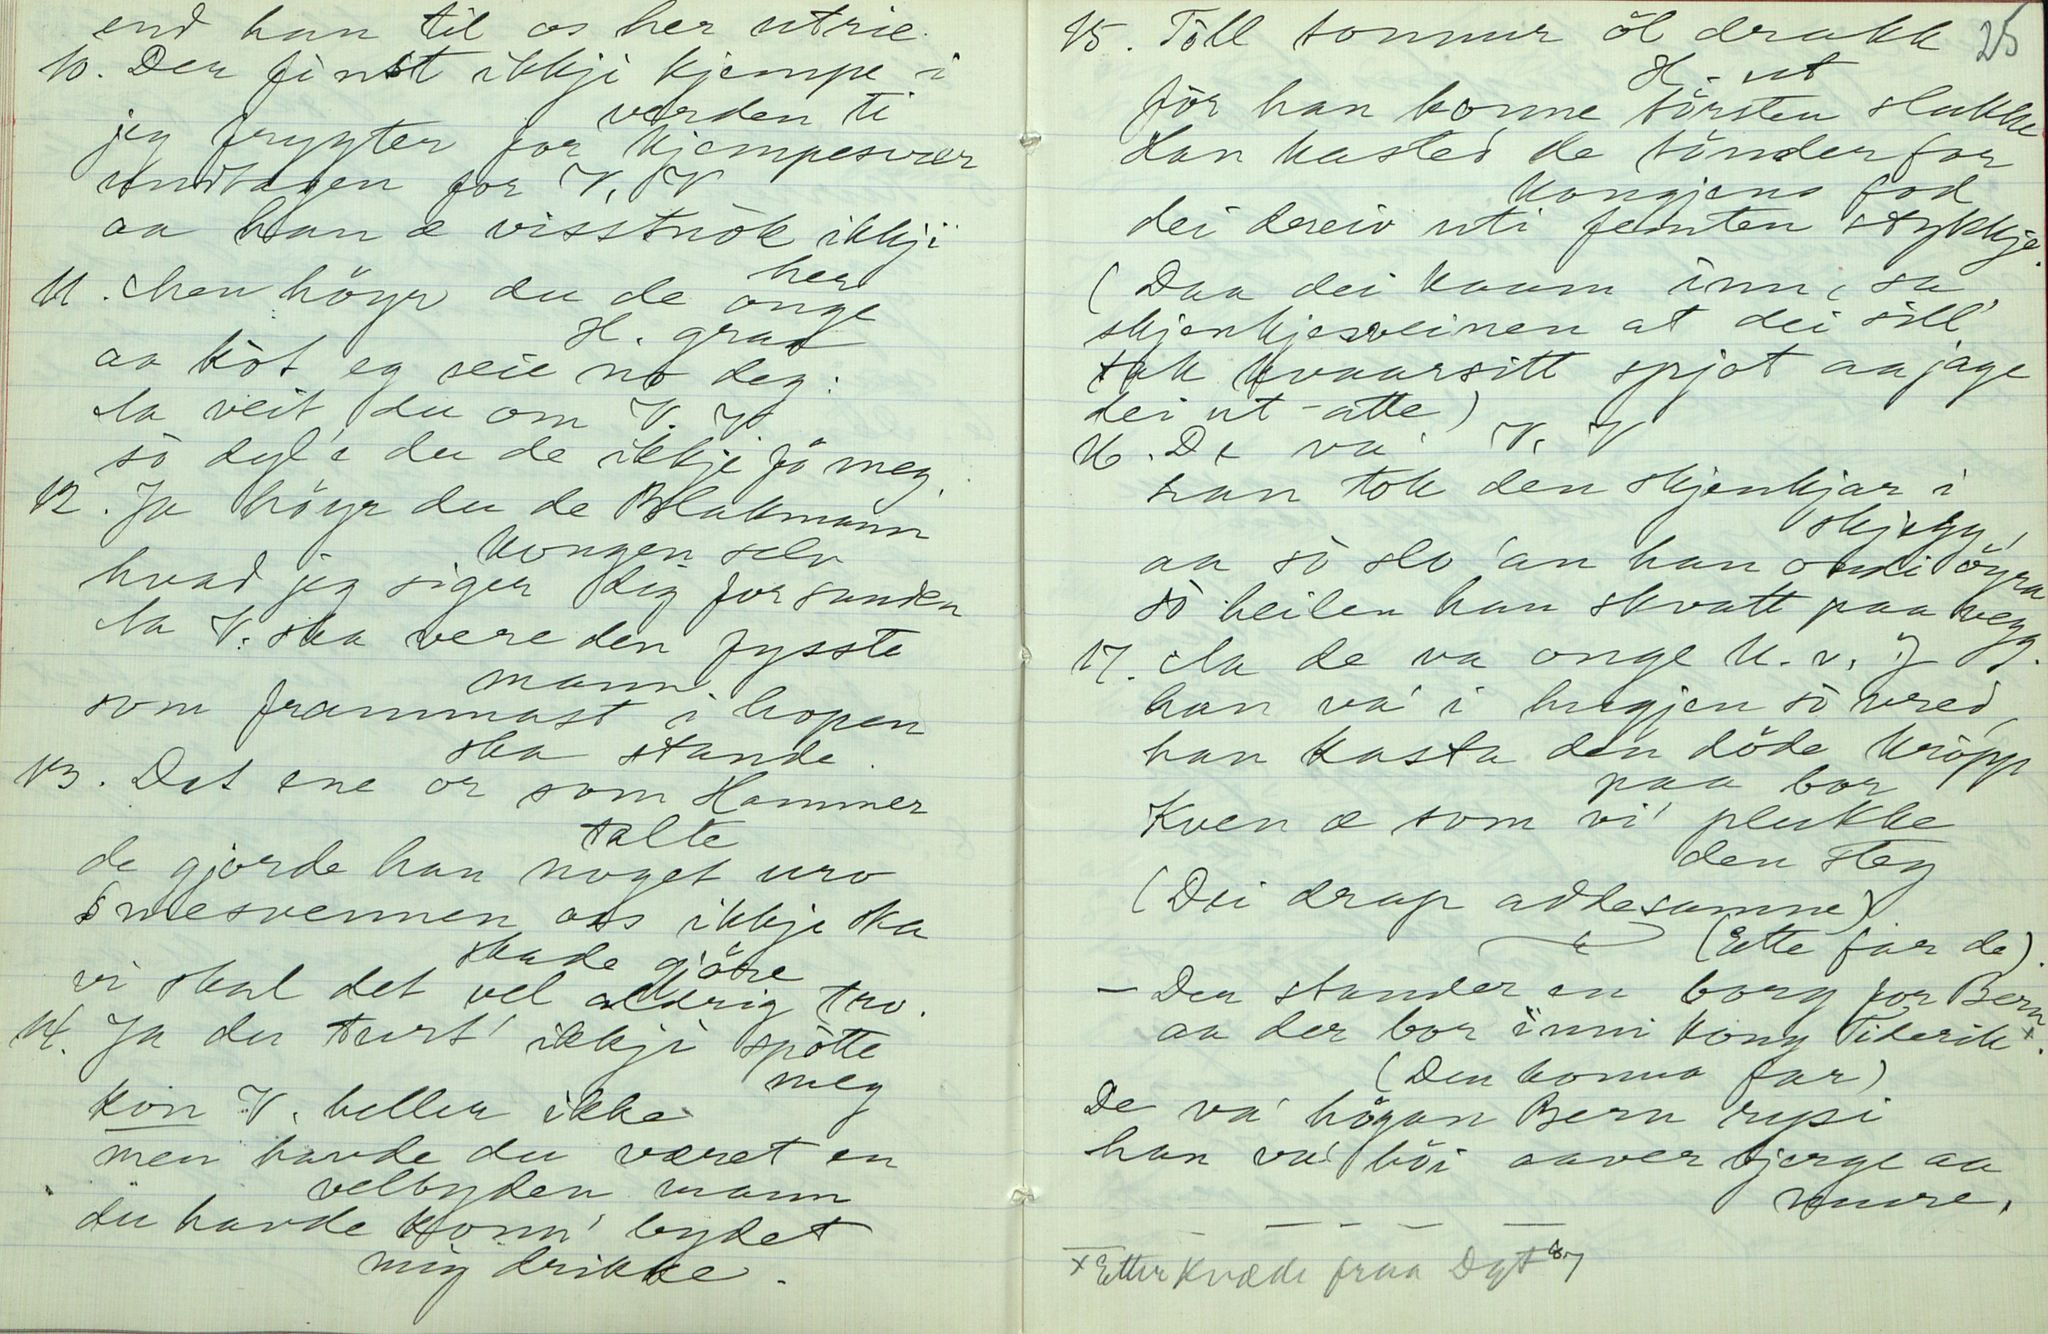 end han til os her utrie.
10. Der finst ikkji kjempe i
verden ti
jeg frygter for kjempesvær
undtagen for V. V
aa han æ visstnòk ikkji
her
11. Men höyr du de onge
H. graa
aa kòt eg seie no deg:
Ma veit du om V. V
sò dyl'e du de ikkje fö meg.
12. Ja höyr du de Blakmann
kongen selv
hvad jeg siger dig for sanden
Ma V. ska vere den fysste
mann
som frammast i hopen
ska stande.
13. Det ene or som Hammer
talte
de gjorde han noget uro
Smesvennen oss ikkje ska
skade gjöre
vi skal det vel aldrig tro.
14. Ja du turt' ikkji spòtte
meg
kòn V. heller ikke
men havde du været en
velbyden mann
du havde konn' bydet
mig drikke.
25
15. Tòll tonnur öl drakk
H. ut
för han konne törsten slukke
Han kasted de tönder for
kongjens fod
dei dreiv uti femten stykkje.
(Daa dei kaam inn, sa
skjenkjesveinen at dei sill'
tak kvaarsitt spjot aa jage
dei ut-atte)
16. De va' V. V
han tok den skjenkjar i
skjegg,
aa sò slo 'an han ondi öyra
sò heilen han skvatt paa vegg.
17. Ma de va onge U. v. J
han va' i hugjen sò vred,
han kasta den döde kròpp
paa bor
Kven æ som vi' plukke
den steg
(Dei drap addesamne)
(Ette far de).
- Der stander en borg for Bern
aa der bor inni kong Tiderik x.
(Den konna far)
De va' högan Bern rysi
han va' höi aaver bjerge aa
mure.
x Etter kvæde fraa Dgt